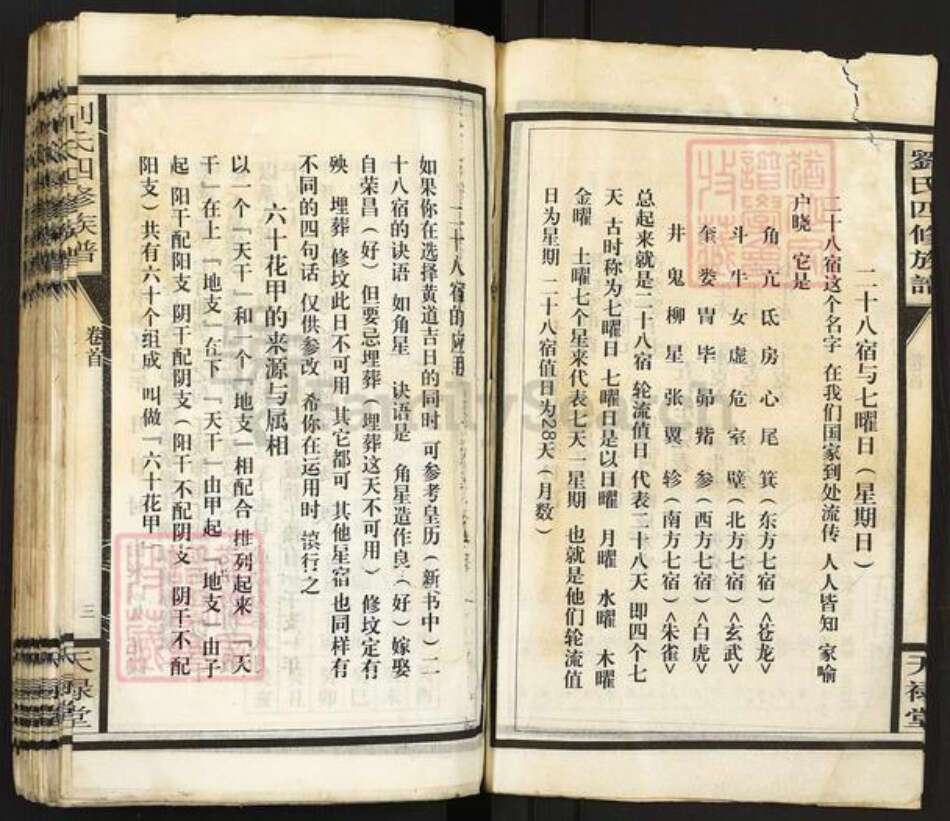 劉氏四修族譜
天禄堂
二十八宿与七曜日(星期日)
二十八宿这个名字 在我们国家到处流传 人人皆知 家喻
户晓 它是
角 亢 氐 房 心 尾 箕(东方七宿)<苍龙>
斗 牛 女 虚 危 室 壁(北方七宿)<玄武>
奎 娄 胃 毕 昴 觜 参(西方七宿)<白虎>
井 鬼 柳 星 张 翼 轸(南方七宿)<朱雀>
总起来就是二十八宿 轮流值日 代表二十八天 即四个七
天 古时称为七曜日 七曜日是以日曜 月曜 水曜 木曜
金曜 土曜七个星来代表七天一星期 也就是他们轮流值
日为星期 二十八宿值日为28天(月数)
二十八宿的应用
如果你在选择黄道吉日的同时 可参考皇历(新书中)二
十八宿的诀语 如角星 诀语是 角星造作良(好)嫁娶
自荣昌(好) 但要忌埋葬(埋葬这天不可用) 修坟定有
殃 埋葬 修坟此日不可用 其它都可 其他星宿也同样有
不同的四句话 仅供参改 希你在运用时 慎行之
六十花甲的来源与属相
以一个「天干」和一个「地支」相配合 排列起来 「天
干」在上 「地支」在下 「天干」由甲起 「地支」由子
起 阳干配阳支 阴干配阴支(阳干不配阴支 阴干不配
阳支)共有六十个组成 叫做「六十花甲
刘氏四修族谱
卷首
三
天禄堂
FamilySearch